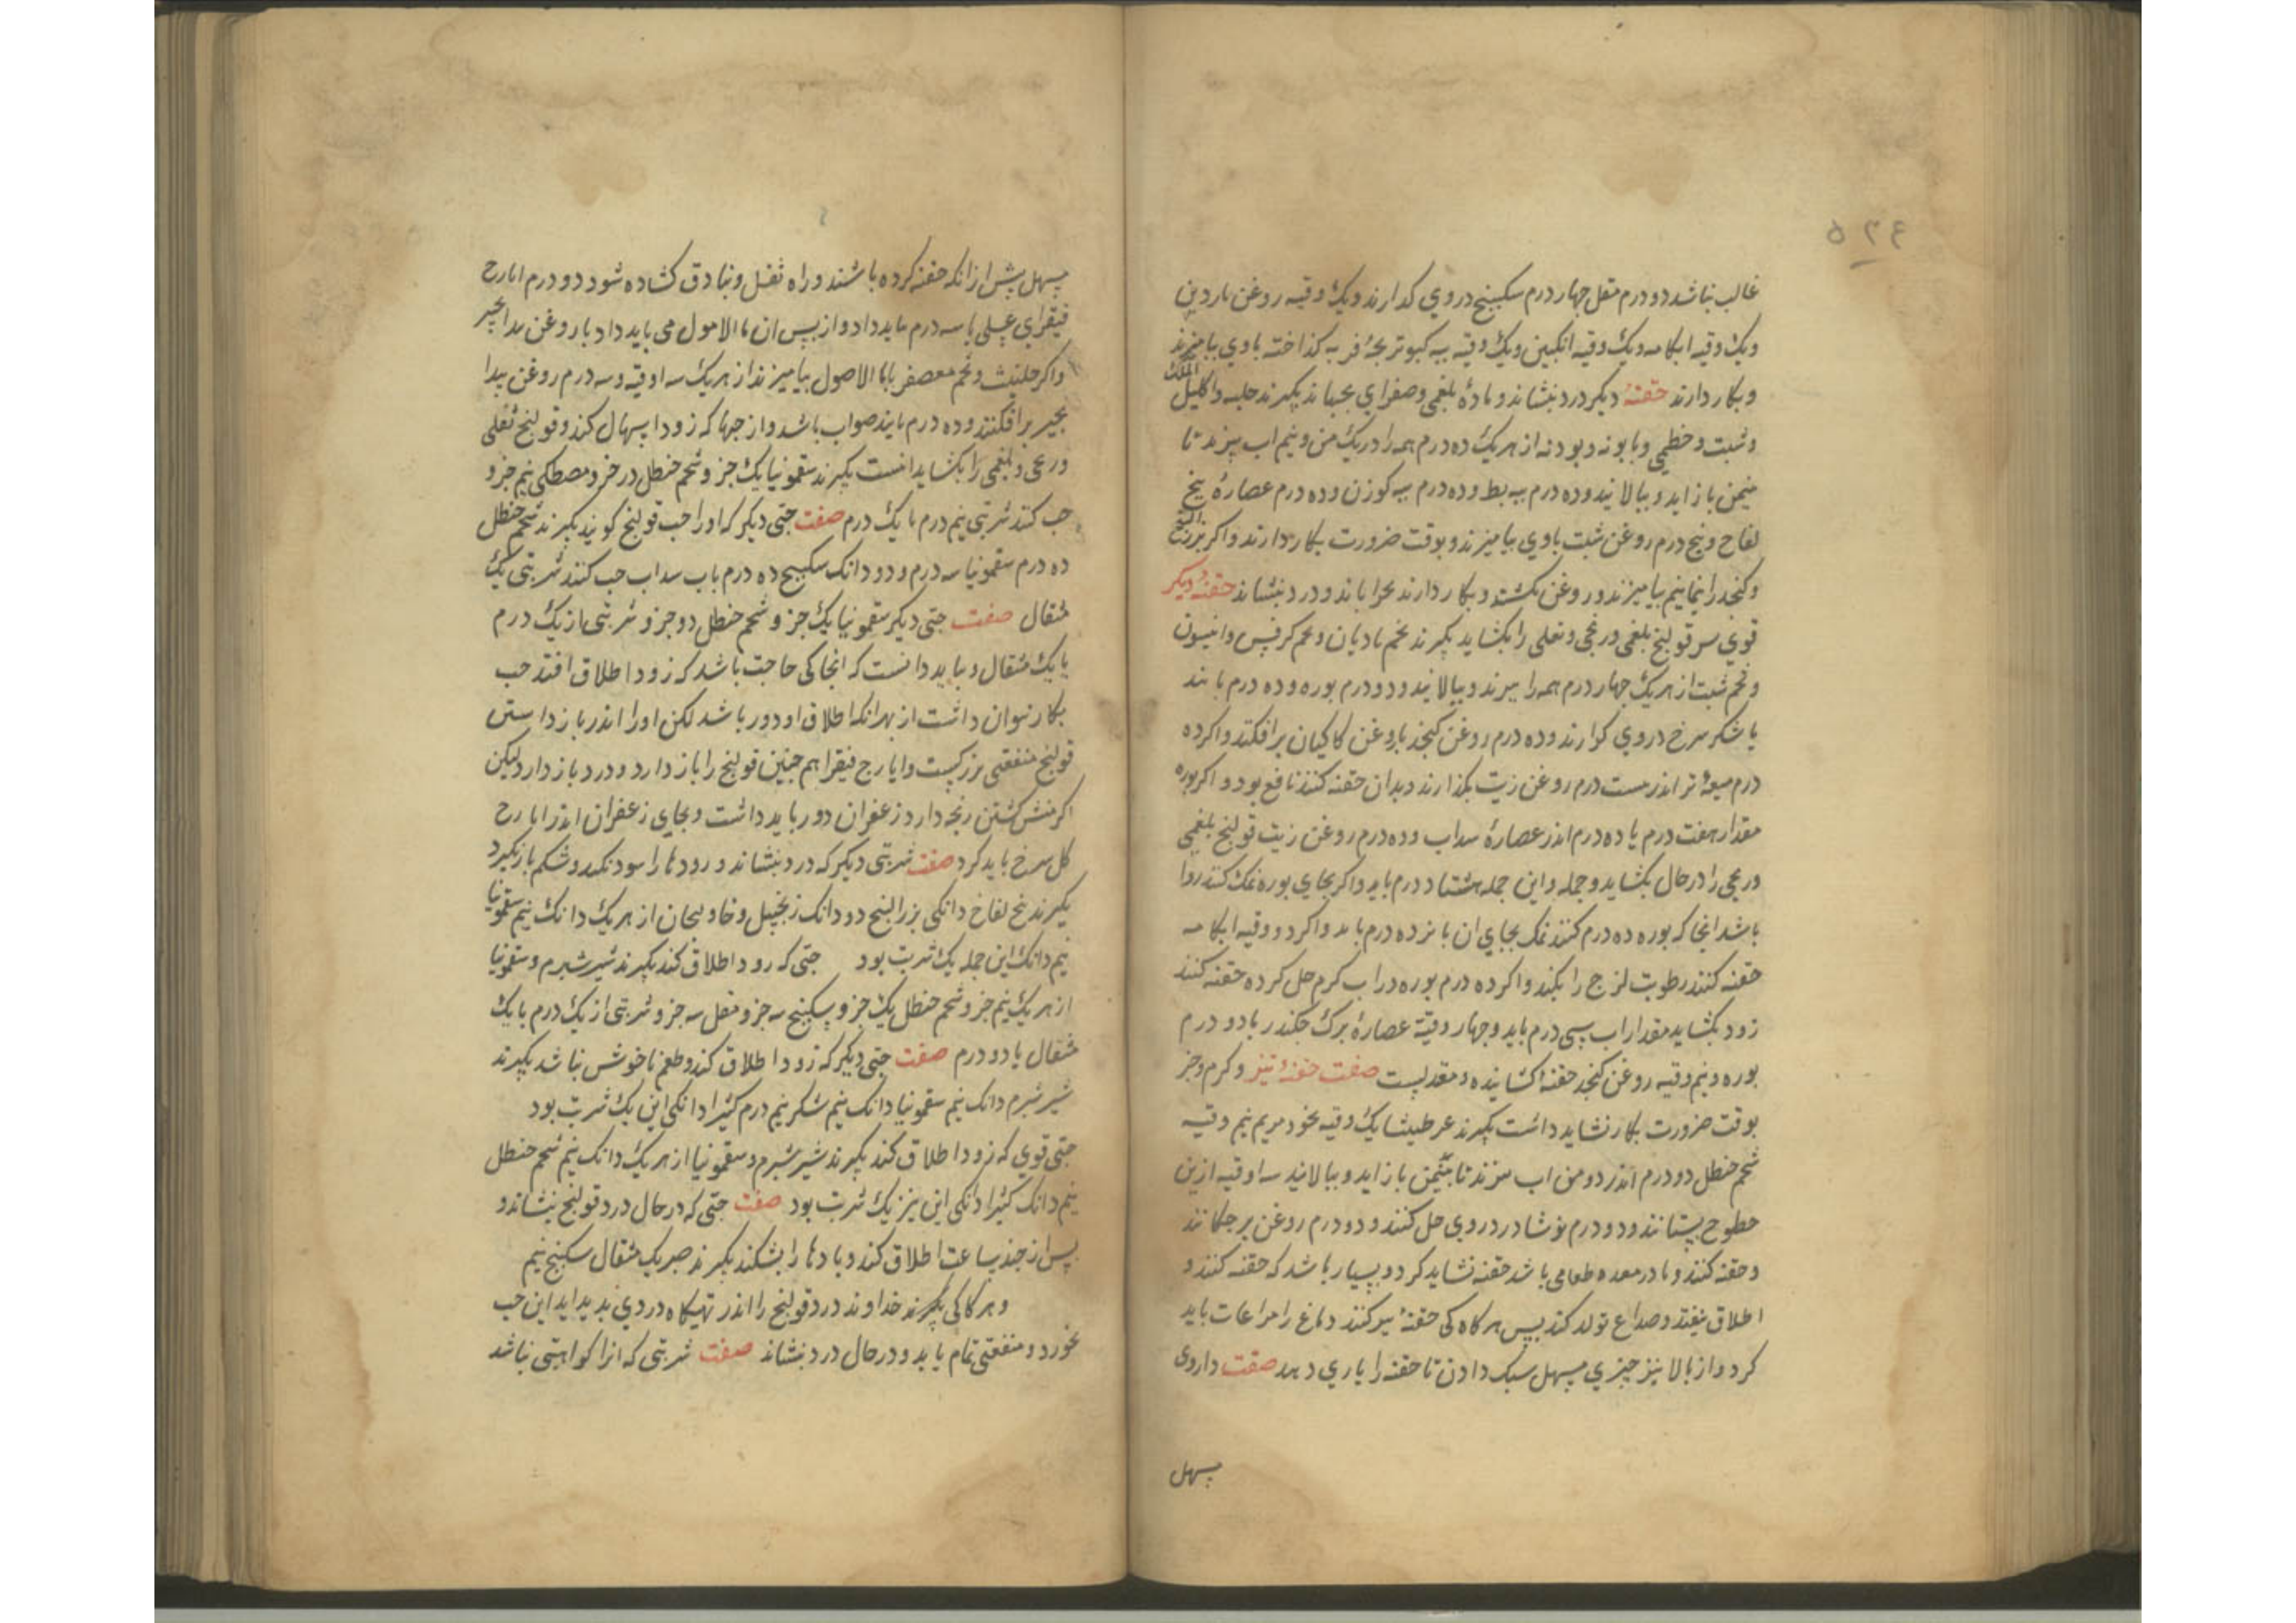 ۵۲۶
غالب نباشد دو درم مقل چهار درم سکبینج در وی کدارند و یک وقیه روغن ناردین
و یک وقیه ابکامه و یک وقیه انکبین و یک وقیه پیه کبوتر بچهٔ فربه کذاخته با وی بیامیزند
و بکار دارند حقنهٔ دیکر درد بنشاند و مادهٔ بلغمی و صفرای بجنباند بکیرند حلبه و اکلیل الملک
و شبت و خطمی و بابونه و بودنه از هر یک ده درم همه را در یک من و نیم اب بپزند تا
بنیمن باز اید و ببالایند و ده درم پیه بط و ده درم پیه کوزن و ده درم عصارهٔ بیخ
لفاح و پنج درم روغن شبت با وی بیامیزند و بوقت ضرورت بکار دارند و اکر بزر البنج
و کنجد را بیامیزند و روغن بکشند و بکار دارند بخواباند و درد بنشاند حقنهٔ دیکر
قوی سر قولنج بلغمی و ریحی و ثفلی را بکشاید بکیرند تخم بادیان و تخم کرفس و انیسون
و تخم شبت از هر یک چهار درم همه را بپزند و ببالایند و دو درم بوره و ده درم پانید
یا شکر سرخ در وی کدارند و ده درم روغن کنجد یا روغن کاکیان برافکنند و اکر ده
درم میعهٔ تر اندر بیست درم روغن زیت بکدارند و بدان حقنه کنند نافع بود و اکر بوره
مقدار هفت درم یا ده درم اندر عصارهٔ سداب و ده درم روغن زیت قولنج بلغمی
و ریحی را در حال بکشاید و جمله و این جمله هشتاد درم باید و اکر بجای بوره نمک کنند روا
باشد انجا که بوره ده درم کنند نمک بجای ان پانزده درم باید و اکر دو وقیه ابکامه
حقنه کنند رطوبت لزج را بکند و اکر ده درم بوره در اب کرم حل کرده حقنه کنند
زود بکشاید مقدار اب سی درم باید و چهار وقیهٔ عصارهٔ برک جکندر با دو درم
بوره و نیم وقیه روغن کنجد حقنهٔ کشاینده و معتدلست صفت حقنهٔ تیز و کرم و جز
بوقت ضرورت بکار نشاید داشت بکیرند عرطنیثا یک وقیه بخور مریم نیم وقیه
شحم حنظل دو درم اندر دو من اب بپزند تا بنیمن باز اید و ببالایند سه اوقیه ازین
مطبوخ بستانند و دو درم نوشادر در وی حل کنند و دو درم روغن بر چکانند
و حقنه کنند و تا در معده طعامی باشد حقنه نشاید کرد و بسیار باشد که حقنه کنند و
اطلاق نیفتد و صداع تولد کند پس هر کاه کی حقنهٔ تیز کنند دماغ را مراعات باید
کرد و از بالا نیز چیزی مسهل سبک دادن تا حقنه را یاری دهد صفت داروی
مسهل
مسهل پیش از انکه حقنه کرده باشند و راه ثفل و بنادق کشاده شود دو درم ایارج
فیقرای عسلی یا سه درم باید داد و از پس ان ماالاصول می باید داد با روغن بیدانجیر
و اکر حلتیت و تخم معصفر با ماالاصول بیامیزند از هر یک سه اوقیه و سه درم روغن بیدا
نجیر برافکنند و ده درم پانید صواب باشد و از حبها که زود اسهال کند و قولنج ثفلی
و ریحی و بلغمی را بکشاید اینست بکیرند سقمونیا یک جزو شحم حنظل دو جزو مصطکی نیم جزو
حب کنند شربتی نیم درم تا یک درم صفت حبی دیکر که اورا حب قولنج کویند بکیرند شحم حنظل
ده درم سقمونیا سه درم و دو دانک سکبینج ده درم باب سداب حب کنند شربتی یک
مثقال صفت حبی دیکر سقمونیا یک جزو شحم حنظل دو جزو شربتی از یک درم
یا یک مثقال و بباید دانست که انجا کی حاجت باشد که زود اطلاق افتد حب
بکار نتوان داشت از بهر انکه اطلاق او دور باشد لکن اورا اندر بازداشتن
قولنج منفعتی بزرکست و ایارج فیقرا هم چنین قولنج را باز دارد و درد باز دارد لیکن
اکر منش کشتن رنجه دارد زعفران دور باید داشت و بجای زعفران اندر ایارج
کل سرخ باید کرد صفت شربتی دیکر که درد بنشاند و رودها را سود کند و شکم باز نکیرد
بکیرند بیخ لفاح دانکی بزر البنج دو دانک زنجبیل و خاولنجان از هر یک دانک نیم سقمونیا
نیم دانک این جمله یک شربت بود حبی که زود اطلاق کند بکیرند شیر شبرم و سقمونیا
از هر یک نیم جزو شحم حنظل یک جزو سکبینج سه جزو مقل سه جزو شربتی از یک درم یا یک
مثقال یا دو درم صفت حبی دیکر که زود اطلاق کند و طعم ناخوش نباشد بکیرند
شیر شبرم دانک نیم سقمونیا دانک نیم شکر نیم درم کثیرا دانکی این یک شربت بود
حبی قوی که زود اطلاق کند بکیرند شیر شبرم و سقمونیا از هر یک دانک نیم شحم حنظل
نیم دانک کثیرا دانکی این نیز یک شربت بود صفت حبی که در حال درد قولنج بنشاند و
پس از چند ساعت اطلاق کند و بادها را بشکند بکیرند صبر یک مثقال سکبینج نیم
و هر کا کی بکیرند خداوند درد قولنج را اندر تهیکاه دردی پدید اید این حب
بخورد و منفعتی تمام یابد و در حال درد بنشاند صفت شربتی که انرا کراهیتی نباشد